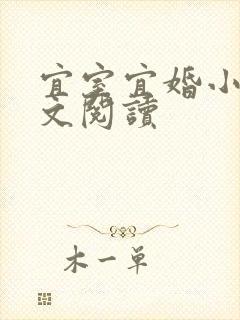 宜室宜婚小
文閱讀
木一单